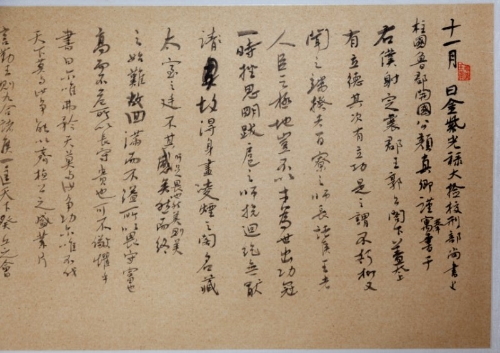 十一月 日金紫光禄大 檢校刑部尚書上
柱國魯郡開國公顏真卿謹奉書于
右僕射定襄郡王郭公閣下蓋太上
有立德其次有立功是之謂不朽抑又
聞之端揆者百寮之師長諸侯王者
人臣之極地豈不以才為世出功冠
一時挫思明跋扈之師抗迴紇無厭
請故得身畫凌煙之閣名藏
太室之廷 然美則美 而終
之始難故曰滿而不溢所以長守富也
高而不危所以長守貴也可不儆懼乎
書曰尔唯弗矜天下莫與汝爭功尔唯不伐
天下莫與汝爭能以齊桓公之盛業片
言勤王則九合諸侯一匡天下葵丘之會